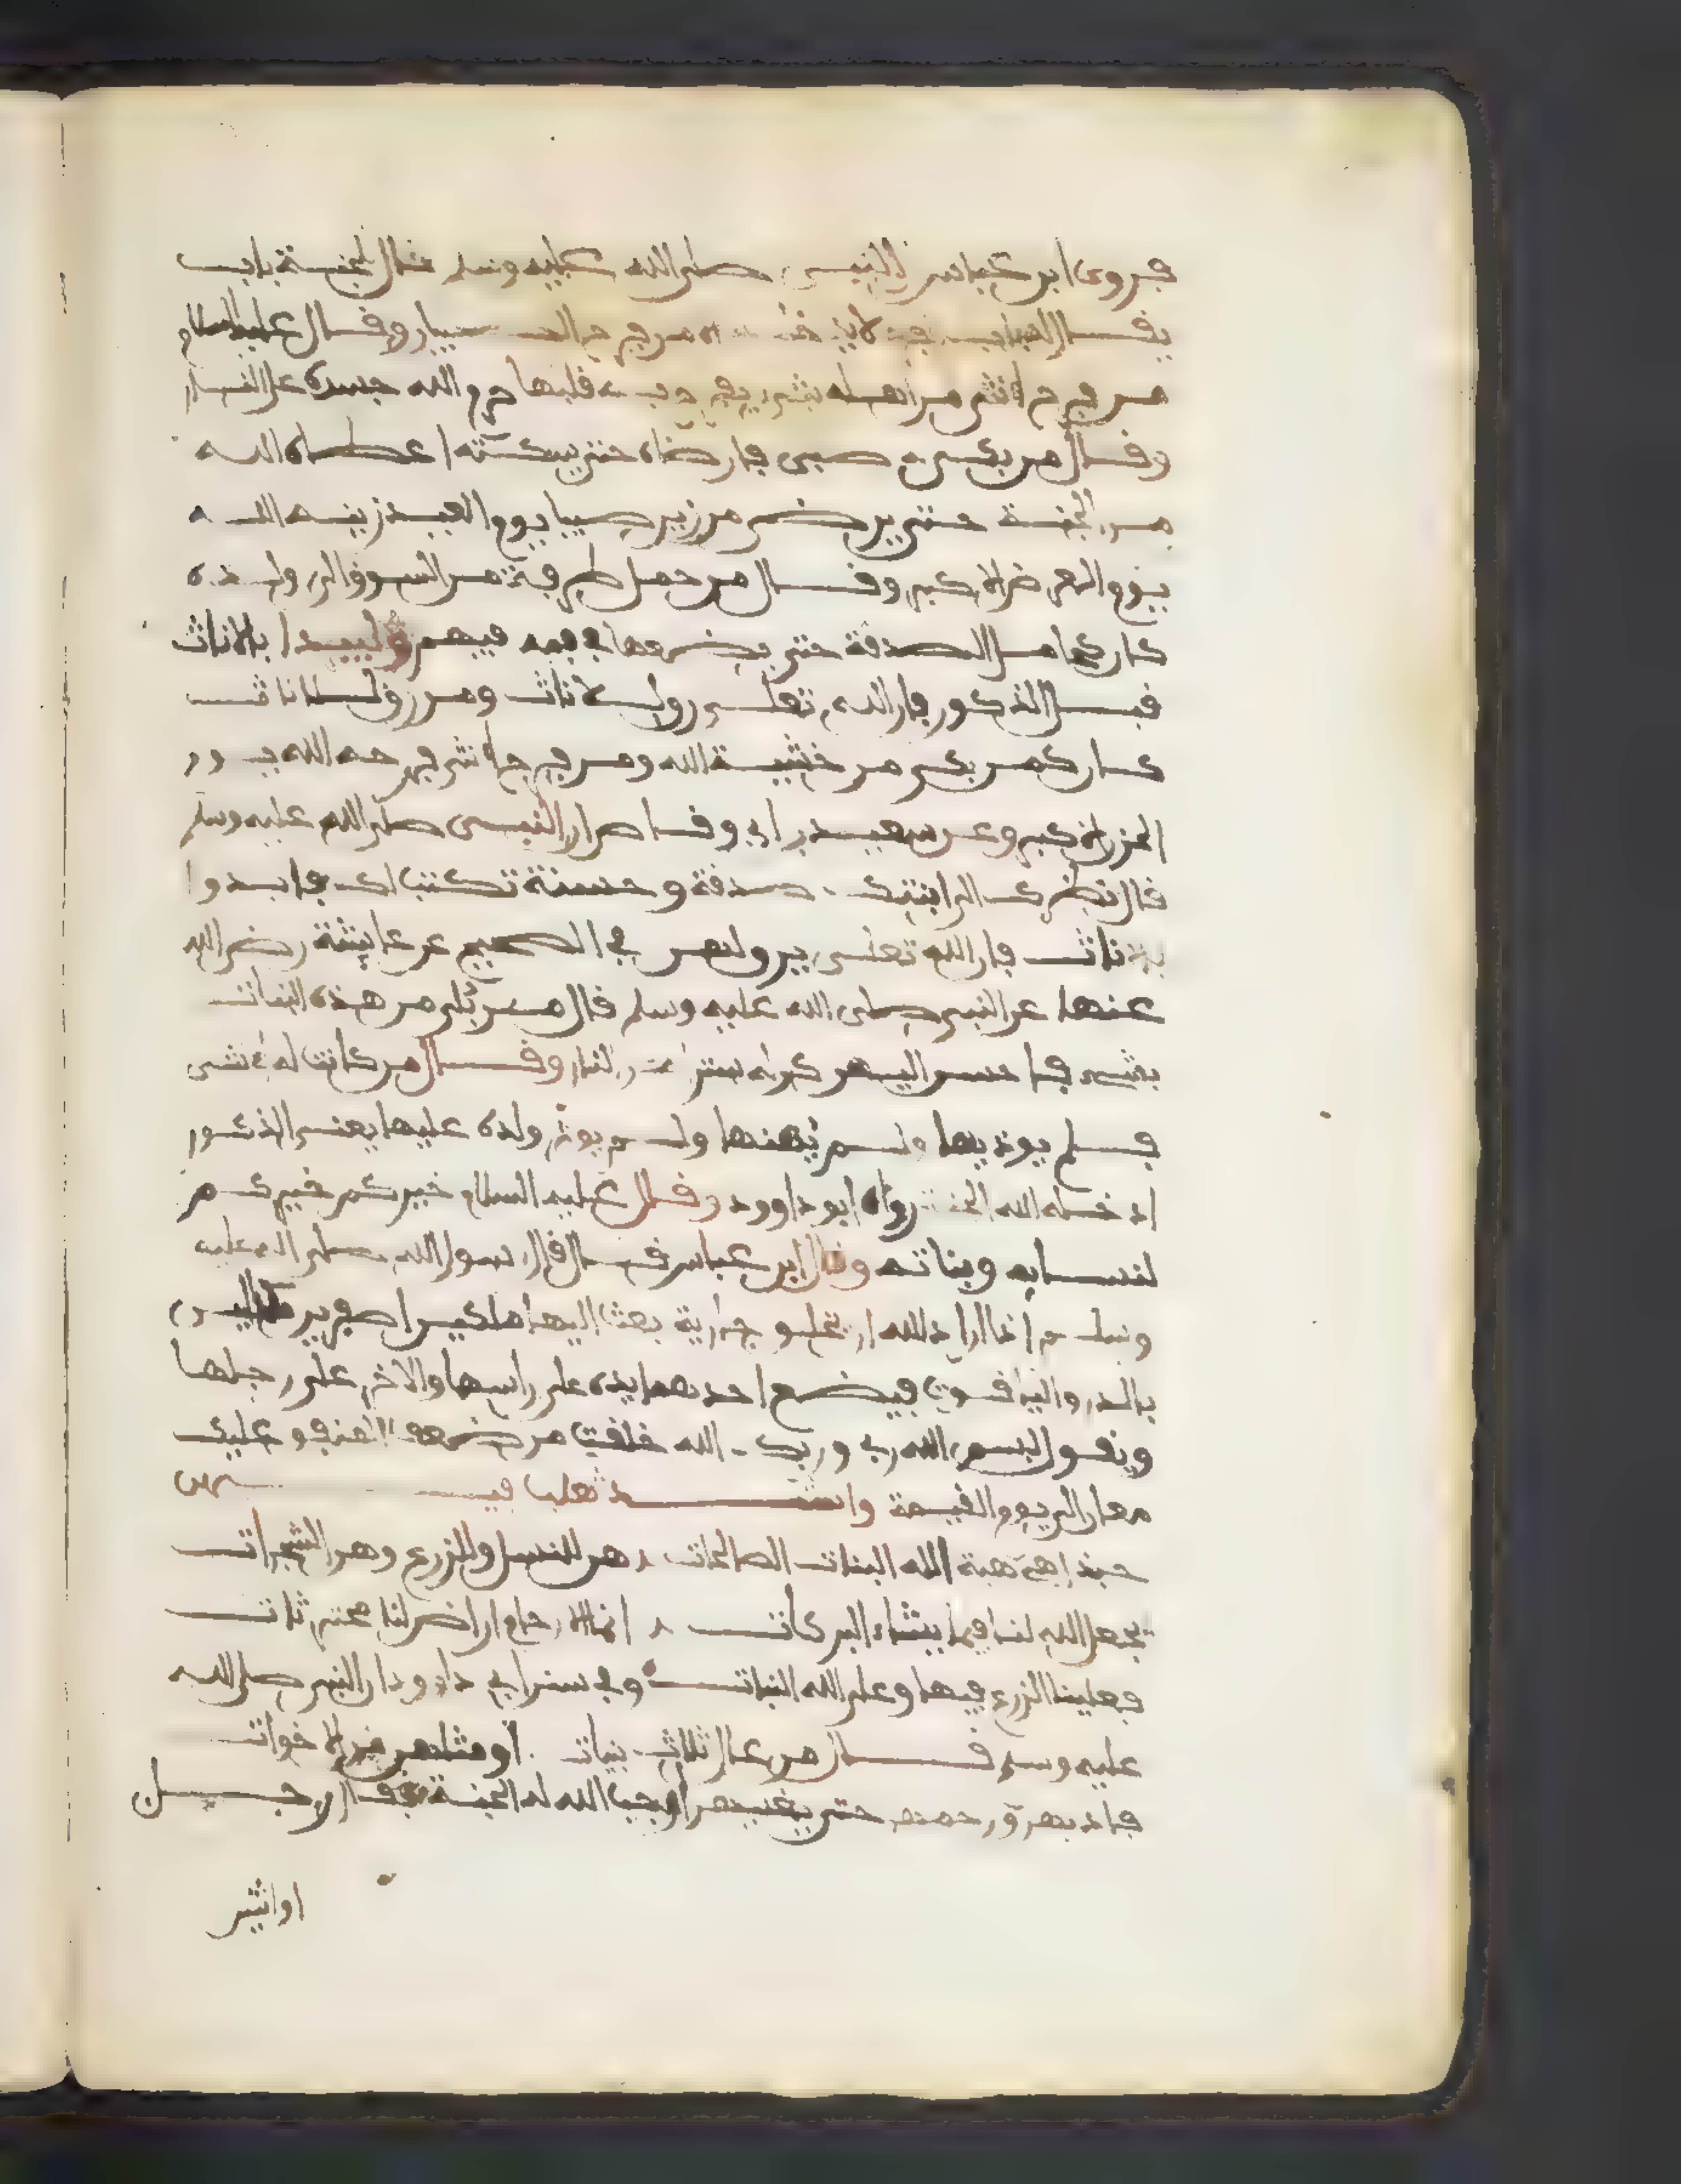 فروى ابن عباس ان النبي صلى الله عليه وسلم قال للجنة باب
يقال له باب الفرح لا يدخله من فرح الصبيان وقال عليه السلام
من فرح انثى من اهله بشيء يفرح به قلبها حرم الله جسده على النار
وقال من بكى صبي فارضاه حتى يسكته اعطاه الله
من الجنة حتى يرضى من زين صبيا يوم العيد زينه الله
يوم العرض الاكبر وقال من حمل طرفة من السوق الى ولده
كان كحامل الصدقة حتى يضعها في فيه فيهم وليبدا بالاناث
قبل الذكور فان الله تعلى رق للاناث ومن رق للاناث
كان كمن بكى من خشية الله ومن فرح انثى فرحه الله يوم
الحزن الاكبر وعن سعيد بن ابي وقاص ان النبي صلى الله عليه وسلم
قال نظرك الى ابنتك صدقة وحسنة تكتب لك فابدوا
بالاناث فان الله تعلى يرق لهن في الصحيح عن عايشة رضي الله
عنها عن النبي صلى الله عليه وسلم قال من بلي من هذه البنات
بشيء فاحسن اليهن كن له سترا من النار وقال من كانت له انثى
فلم يوذيها ولم يهنها ولم يوثر ولده عليها يعني الذكور
ادخله الله الجنة رواه ابو داوود وقال عليه السلام خيركم خيركم
لنسايه وبناته وقال ابن عباس قال قال رسول الله صلى الله عليه
وسلم اذا اراد الله ان يخلق جارية بعث اليها ملكين اصفرين مكللين
بالدر والياقوت فيضع احدهما يده على راسها والاخر على رجلها
ويقول بسم الله ربي وربك الله خلقت من ضعف المنفق عليك
معان الى يوم القيمة وانشد ثعلب فيهن
حبذا هي هبة الله البنات الصالحات هن للنسل وللزرع وهن الشجرات
يجعل الله لنا فيما يشاء البركات انما الارحام اراض لنا محترثات
فعلينا الزرع فيها وعلى الله النبات وفي سنن ابي داوود ان النبي صلى الله
عليه وسلم قال من عال ثلاث بنات او مثلهن من الاخوات
فادبهن ورحمهن حتى يغنيهن اوجب الله له الجنة فقال رجل
او اثنين